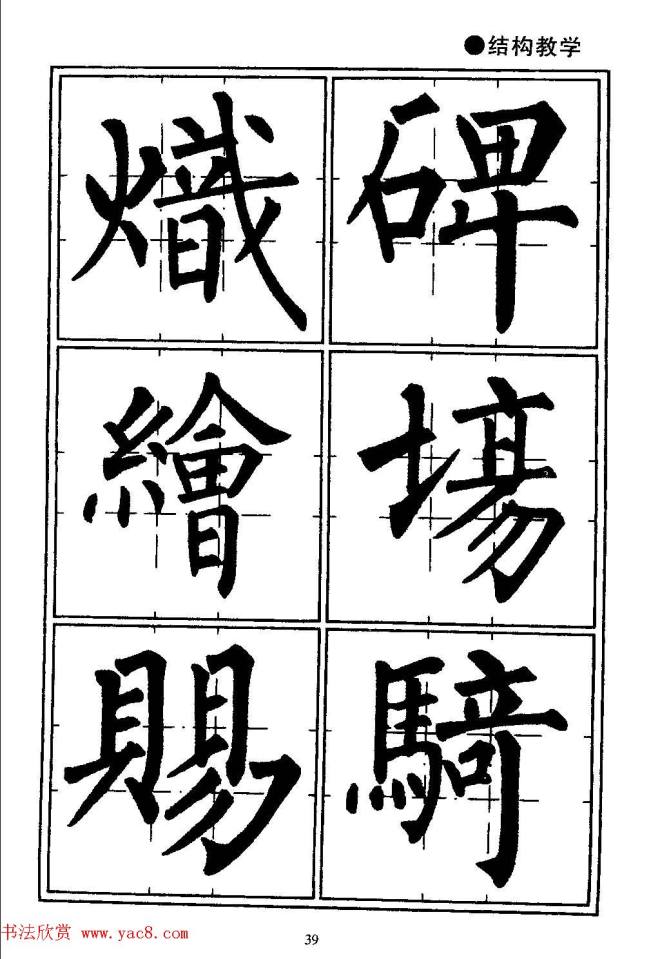 ●结构教学
碑
場
騎
熾
繪
賜
39
书法欣赏 www.yac8.com